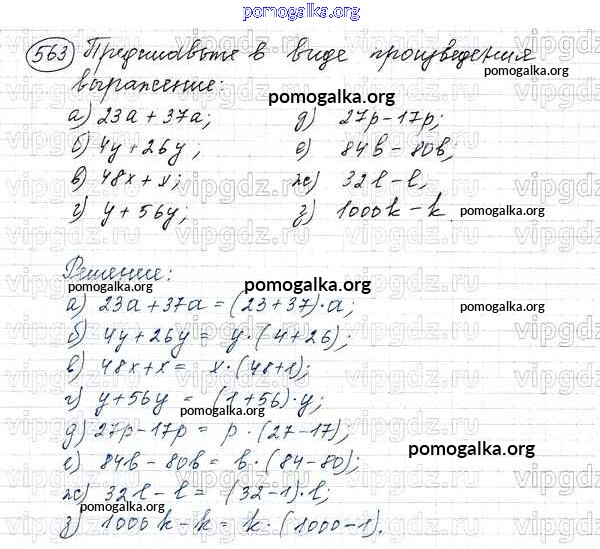 pomogalka.org
563 Представьте в виде произведения
выражение:
pomogalka.org
pomogalka.org
а) 23a + 37a; д) 27p - 17p;
б) 4y + 26y; е) 84b - 80b;
pomogalka.org
в) 48x + x; ж) 32l - l;
г) y + 56y; з) 1000k - k.
pomogalka.org
vipgdz.ru
Решение:
pomogalka.org
pomogalka.org
а) 23a + 37a = (23 + 37) · a;
б) 4y + 26y = y · (4 + 26);
в) 48x + x = x · (48 + 1);
г) y + 56y = (1 + 56) · y;
pomogalka.org
д) 27p - 17p = p · (27 - 17);
pomogalka.org
е) 84b - 80b = b · (84 - 80);
ж) 32l - l = (32 - 1) · l;
з) 1000k - k = k · (1000 - 1).
pomogalka.org